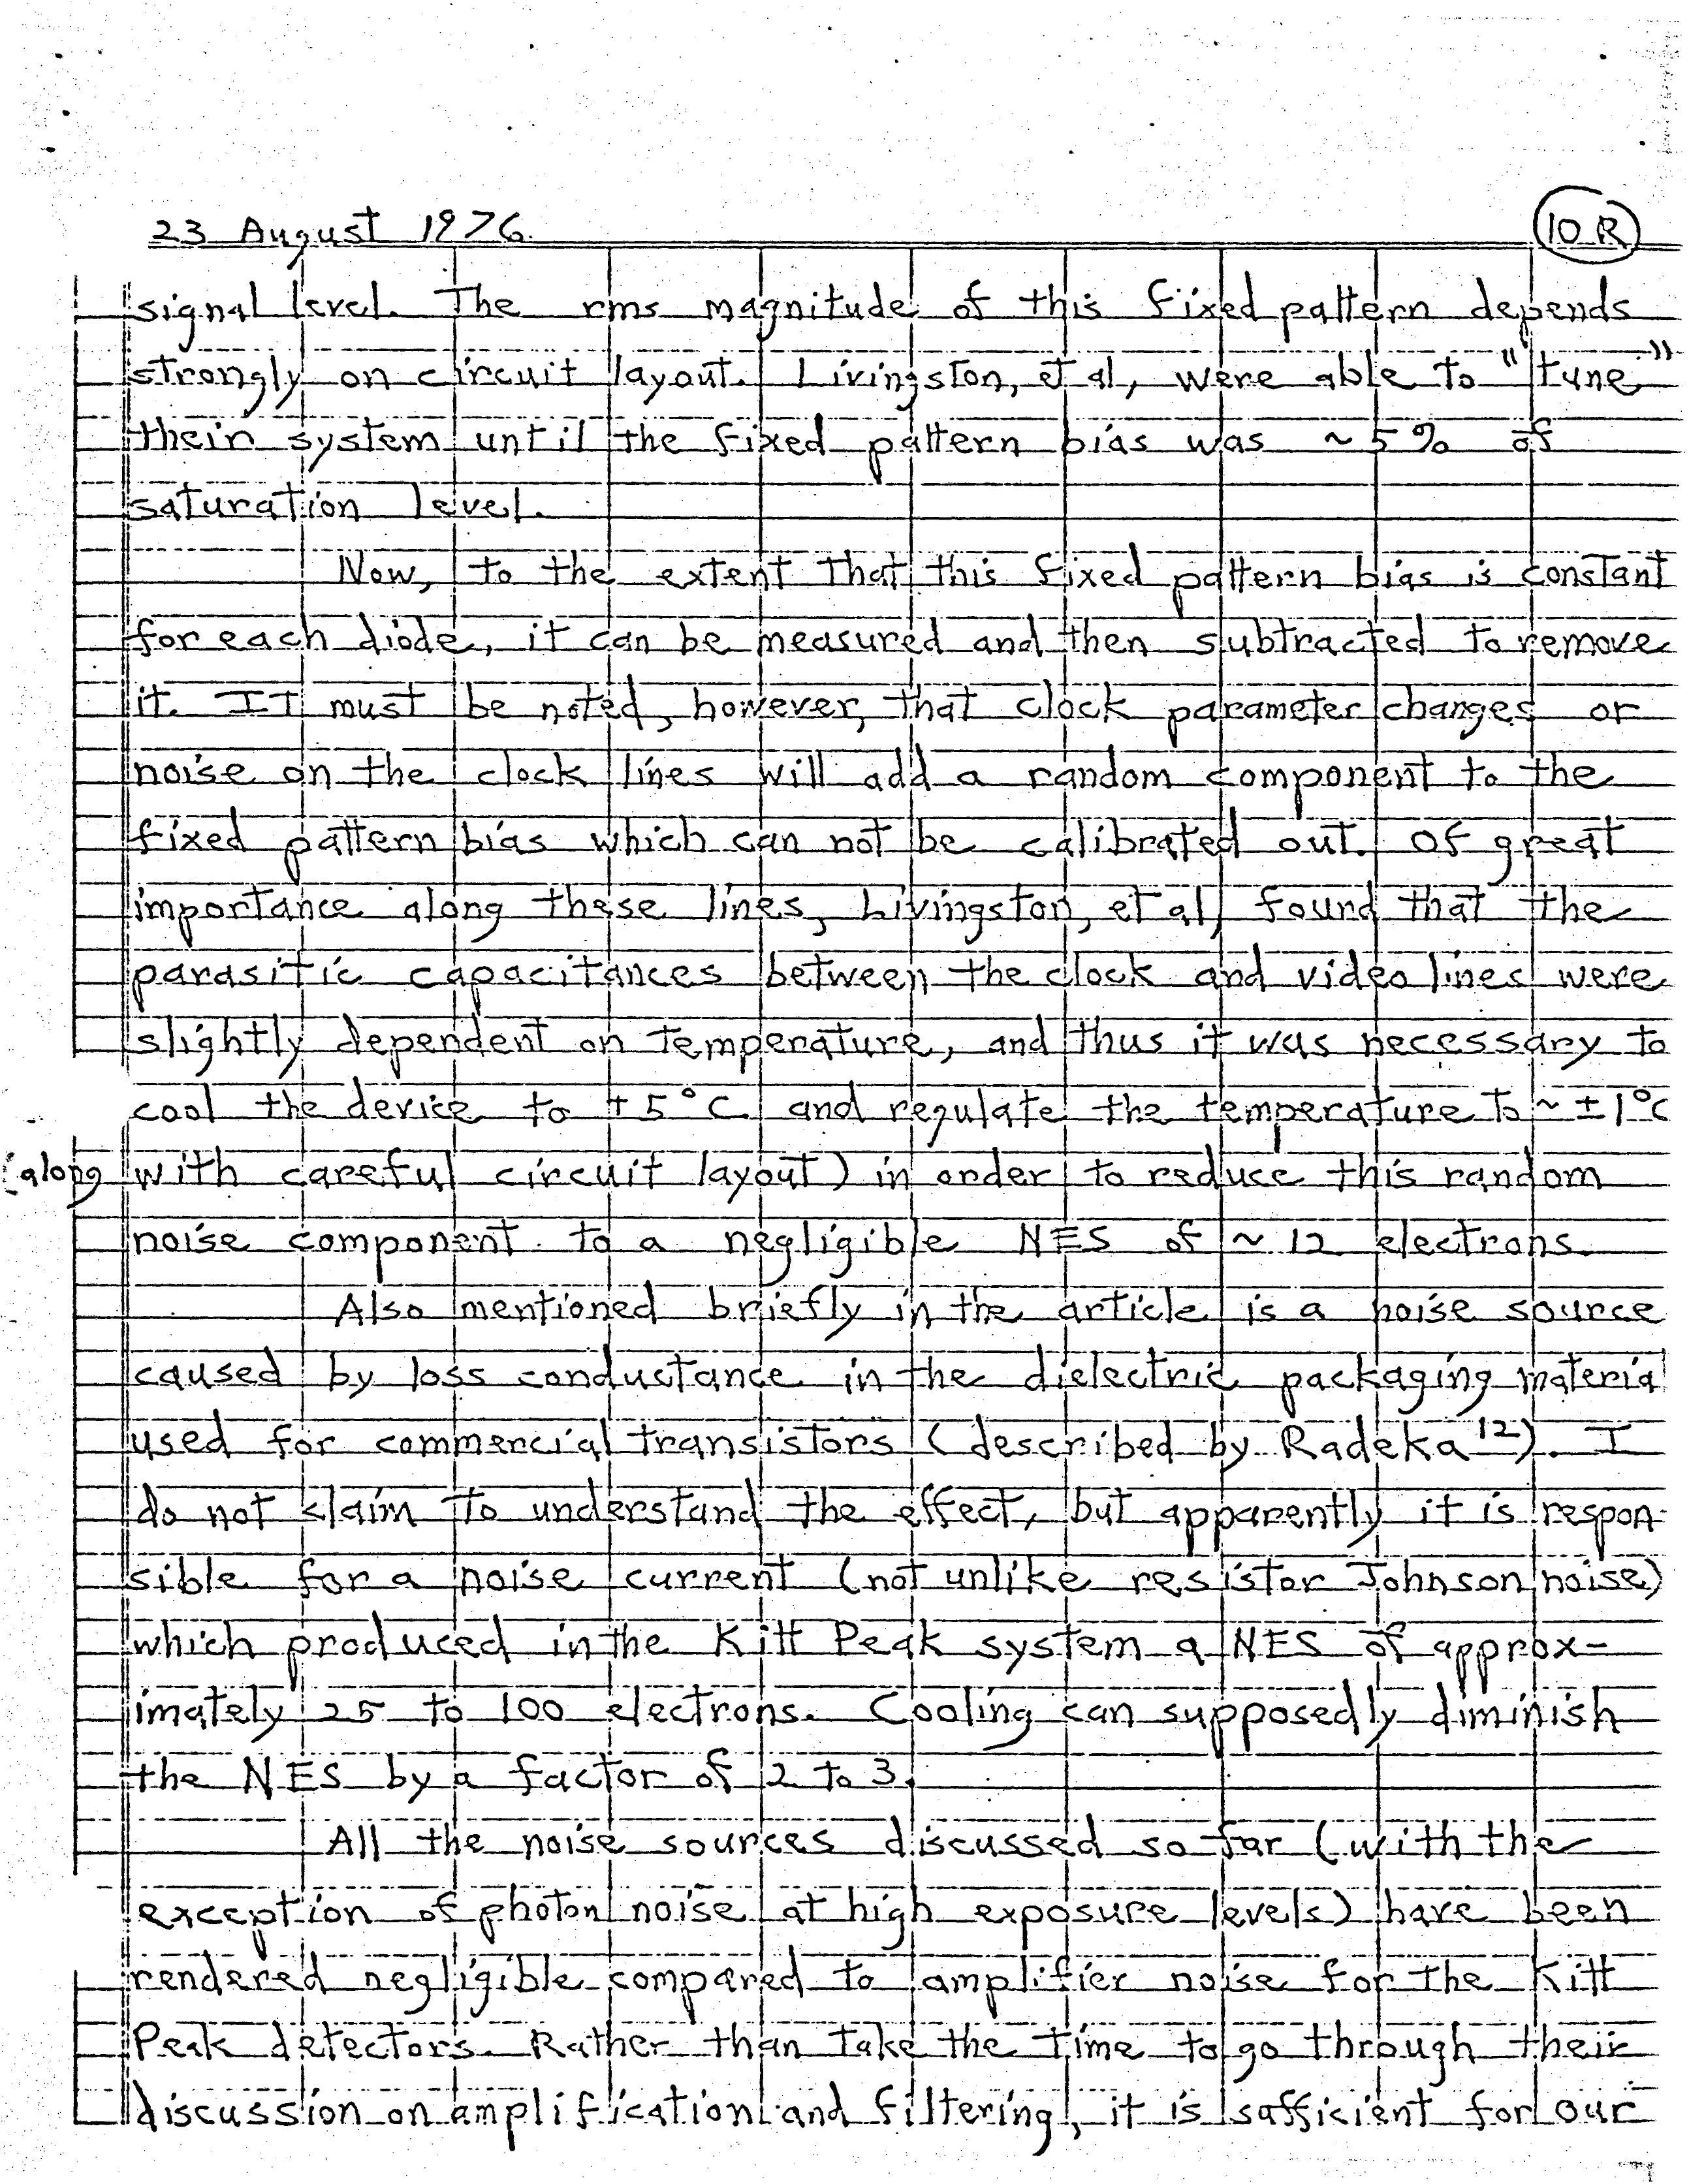 23 August 1976
10 R
signal level. The rms magnitude of this fixed pattern depends
strongly on circuit layout. Livingston, et al, were able to "tune"
their system until the fixed pattern bias was ~5% of
saturation level.
Now, to the extent that this fixed pattern bias is constant
for each diode, it can be measured and then subtracted to remove
it. It must be noted, however, that clock parameter changes or
noise on the clock lines will add a random component to the
fixed pattern bias which can not be calibrated out. Of great
importance along these lines, Livingston, et al, found that the
parasitic capacitances between the clock and video lines were
slightly dependent on temperature, and thus it was necessary to
cool the device to +5°C and regulate the temperature to ~ ±1°C
(along with careful circuit layout) in order to reduce this random
noise component to a negligible NES of ~12 electrons.
Also mentioned briefly in the article is a noise source
caused by loss conductance in the dielectric packaging material
used for commercial transistors (described by Radeka 12). I
do not claim to understand the effect, but apparently it is respon-
sible for a noise current (not unlike resistor Johnson noise)
which produced in the Kitt Peak system a NES of approx-
imately 25 to 100 electrons. Cooling can supposedly diminish
the NES by a factor of 2 to 3.
All the noise sources discussed so far (with the
exception of photon noise at high exposure levels) have been
rendered negligible compared to amplifier noise for the Kitt
Peak detectors. Rather than take the time to go through their
discussion on amplification and filtering, it is sufficient for our